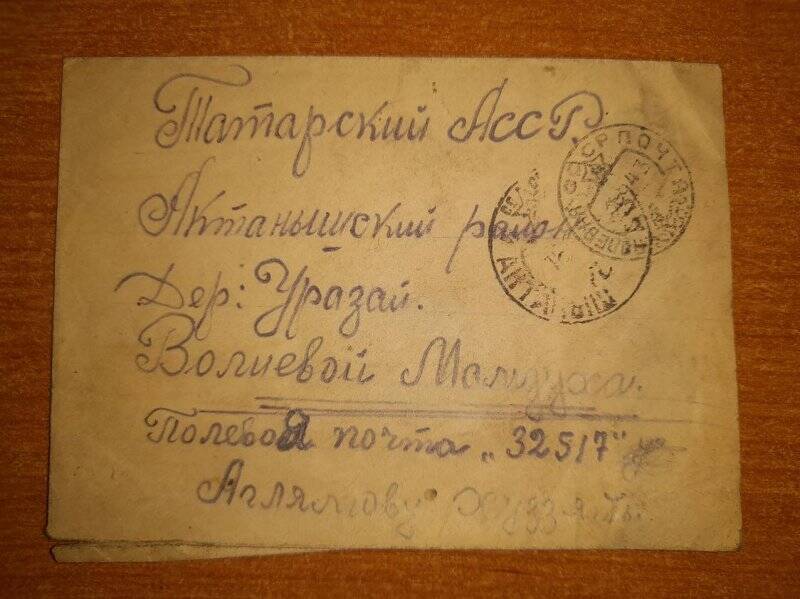 Татарский АссР.
Актанышский район
Дер: Уразай.
Волиевой Мамдуха.
Полевоя почта „32517"
Аглямову
СССР ПОЧТА ПОЛЕВАЯ